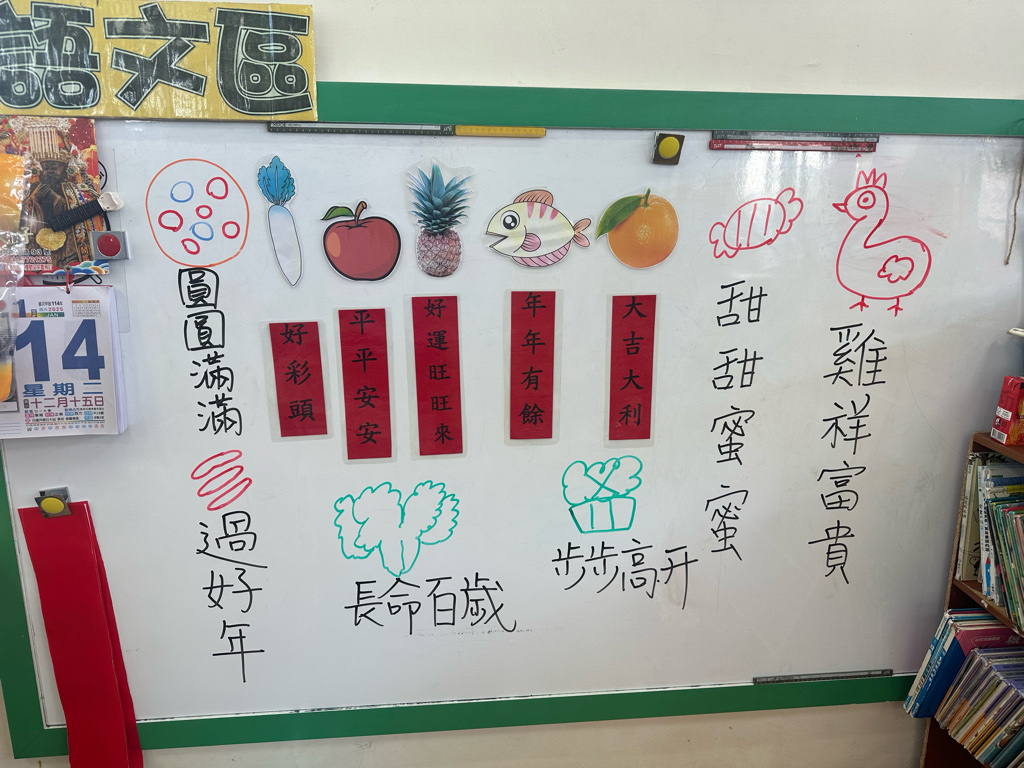 語文區
114
2025
JAN
14
星期二
十二月十五日
圓圓滿滿
過好年
好彩頭
平平安安
好運旺旺來
年年有餘
大吉大利
甜甜蜜蜜
雞祥富貴
長命百歲
步步高升